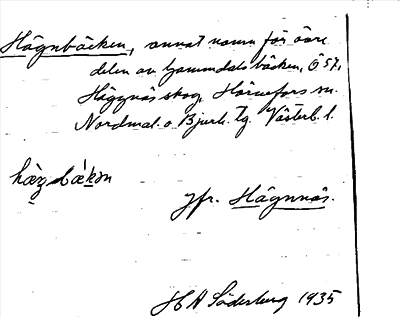 Hägnbäcken, annat namn för övre
delen av Gammdalsbäcken, Ö 57,
Häggnäs skog, Hörnefors sn.
Nordmal. o Bjurh. Tg. Västerb. l.
hä̀ŋ bǽkən
jfr. Hägnnäs.
H A Söderberg 1935